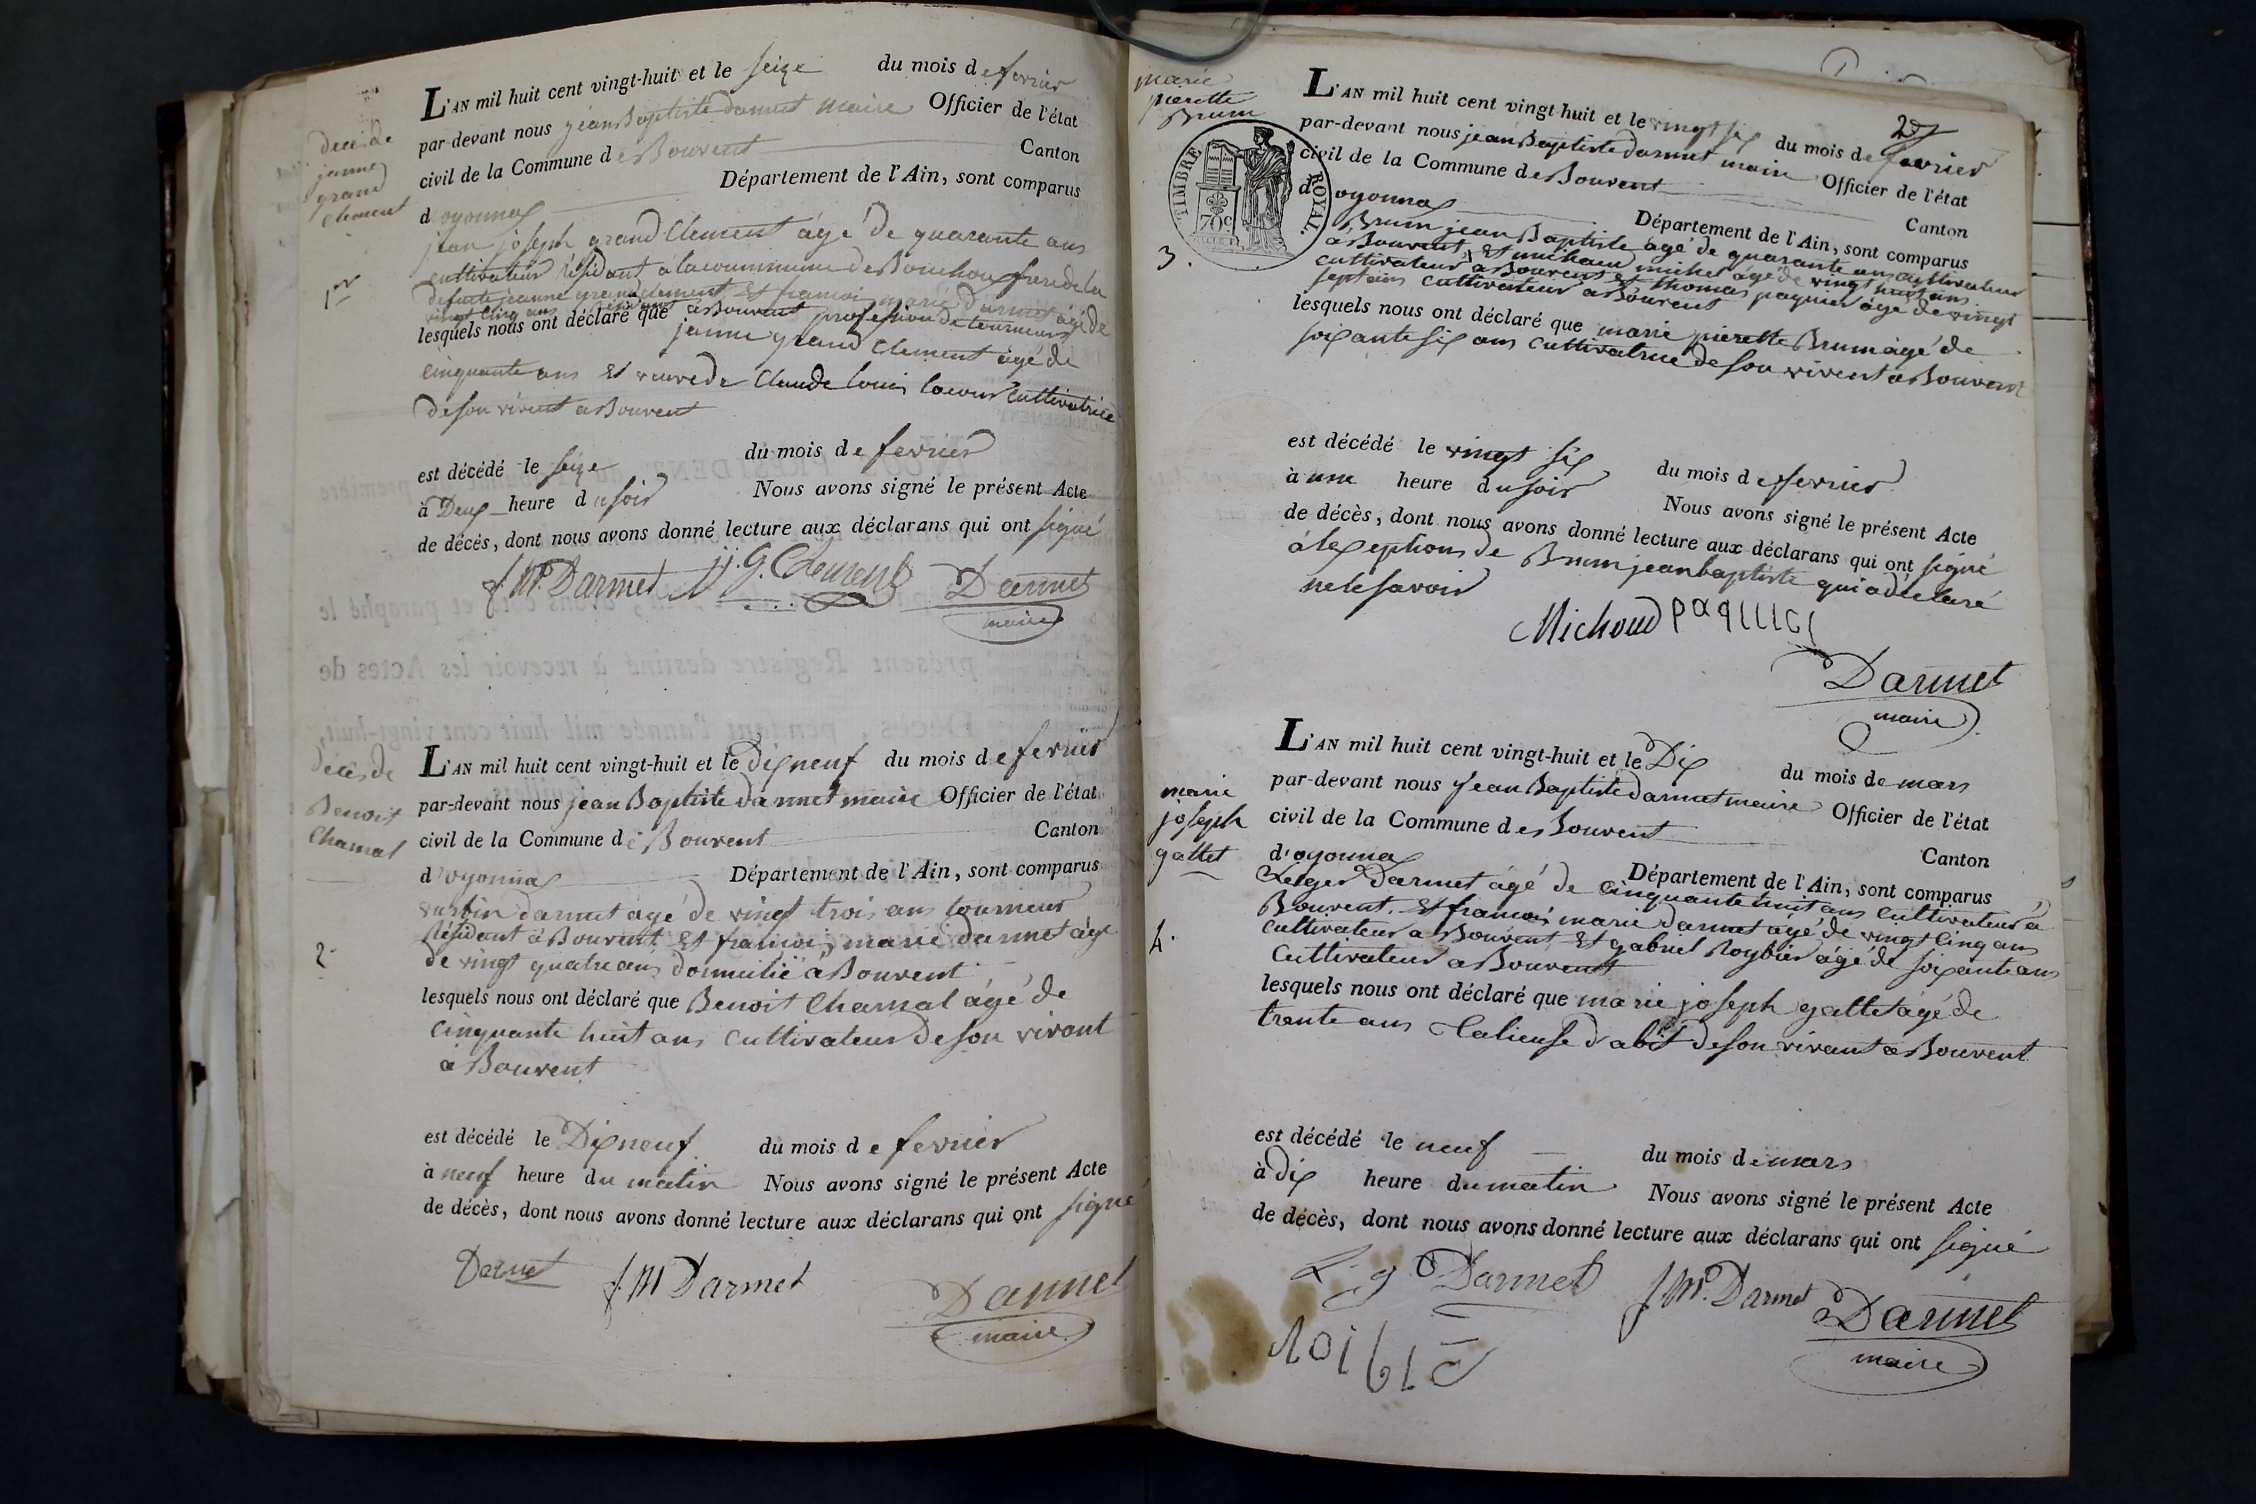 deces de
jeanne
grand
Clement
1er
L'AN mil huit cent vingt-huit et le seize du mois de fevrier
par-devant nous jean Baptiste darmet maire Officier de l'état
civil de la Commune de Bouvent Canton
d'oyonnax Département de l'Ain, sont comparus
jean joseph grand Clement âgé de quarante ans
cultivateur résidant à la commune de Bouchoux frere de la
defunte jeanne grand clement et francois marie darmet âgé de
vingt cinq ans résidant à Bouvent profession de tourneur
lesquels nous ont déclaré que jeanne grand Clement âgé de
cinquante ans et veuve de Claude Louis lacour cultivatrice
de son vivent a Bouvent
est décédé le seize du mois de fevrier
à Deux heure du soir Nous avons signé le présent Acte
de décès, dont nous avons donné lecture aux déclarans qui ont signé
f. Mie Darmet j.j. G. Clement Darmet
maire
décès de
Benoit
Chamal
2.
L'AN mil huit cent vingt-huit et le Dix neuf du mois de fevrier
par-devant nous jean Baptiste darmet maire Officier de l'état
civil de la Commune de Bouvent Canton
d'oyonnax Département de l'Ain, sont comparus
darmet âgé de vingt trois ans tourneur
résidant à Bouvent et francois marie darmet âgé
de vingt quatre ans domicilié à Bouvent
lesquels nous ont déclaré que Benoit Chamal âgé de
cinquante huit ans cultivateur de son vivant
à Bouvent
est décédé le Dix neuf du mois de fevrier
à neuf heure du matin Nous avons signé le présent Acte
de décès, dont nous avons donné lecture aux déclarans qui ont signé
Darmet f. M Darmet Darmet
maire
marie
pierette
Brum
TIMBRE ROYAL.
70c
3.
2
L'AN mil huit cent vingt-huit et le vingt six du mois de fevrier
par-devant nous jean Baptiste darmet maire Officier de l'état
civil de la Commune de Bouvent Canton
d'oyonnax Département de l'Ain, sont comparus
Brum jean Baptiste âgé de quarante ans cultivateur
à Bouvent, et michaud michel âgé de vingt huit ans
cultivateur à Bouvent et thomas paquier âgé de vingt
sept ans cultivateur à Bouvent
lesquels nous ont déclaré que marie pierette Brum âgé de
soixante six ans cultivatrice de son vivent a Bouvent
est décédé le vingt six du mois de fevrier
à une heure du soir Nous avons signé le présent Acte
de décès, dont nous avons donné lecture aux déclarans qui ont signé
à l'exeption de Brum jean baptiste qui a déclaré
ne le savoir
Michoud
Darmet
maire
marie
joseph
gattet
4.
L'AN mil huit cent vingt-huit et le Dix du mois de mars
par-devant nous jean Baptiste darmet maire Officier de l'état
civil de la Commune de Bouvent Canton
d'oyonnax Département de l'Ain, sont comparus
Leger Darmet âgé de cinquante huit ans cultivateur à
Bouvent. et francois marie darmet âgé de vingt cinq ans
cultivateur a Bouvent et gabriel Roybier âgé de soixante ans
cultivateur a Bouvent
lesquels nous ont déclaré que marie joseph gattet âgé de
trente ans talieuse d'abit de son vivant a Bouvent
est décédé le neuf du mois de mars
à dix heure du matin Nous avons signé le présent Acte
de décès, dont nous avons donné lecture aux déclarans qui ont signé
L. g Darmet f. Mie. Darmet Darmet
maire